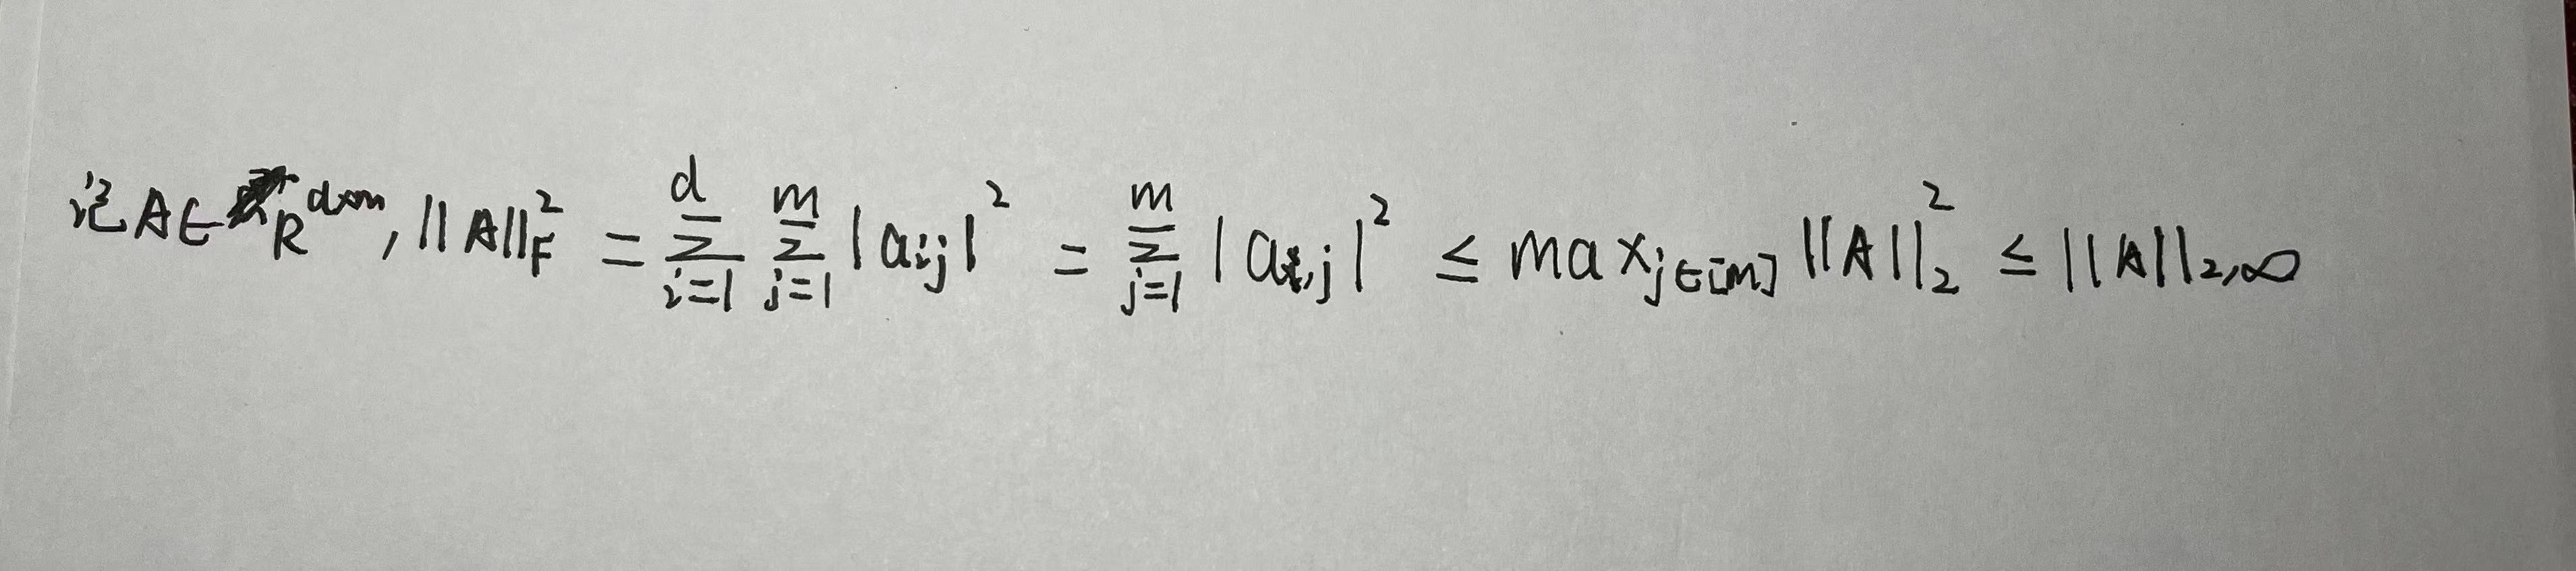 记 A∈R^{d×m}, ||A||_F^2 = \sum_{i=1}^{d} \sum_{j=1}^{m} |a_{ij}|^2 = \sum_{j=1}^{m} |a_{:,j}|^2 ≤ max_{j∈[m]} ||A||_2^2 ≤ ||A||_{2,∞}